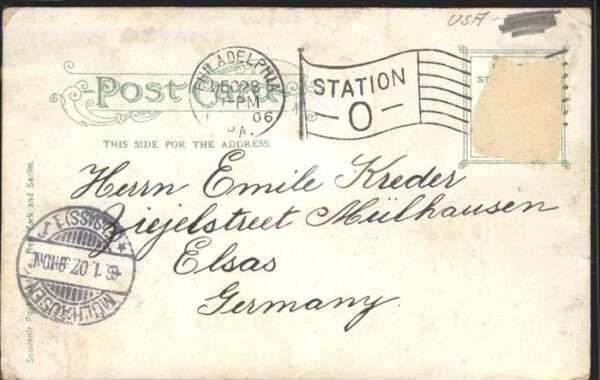 USA -
POST CARD
PHILADELPHIA
DEC 28
PM
06
PA.
STATION
O
THIS SIDE FOR THE ADDRESS.
Herrn Emile Kreder
Ziejelstreet Mülhausen
Elsas
Germany.
MÜLHAUSEN
1.07.9-10N.
Souvenir Post New York and Berlin.